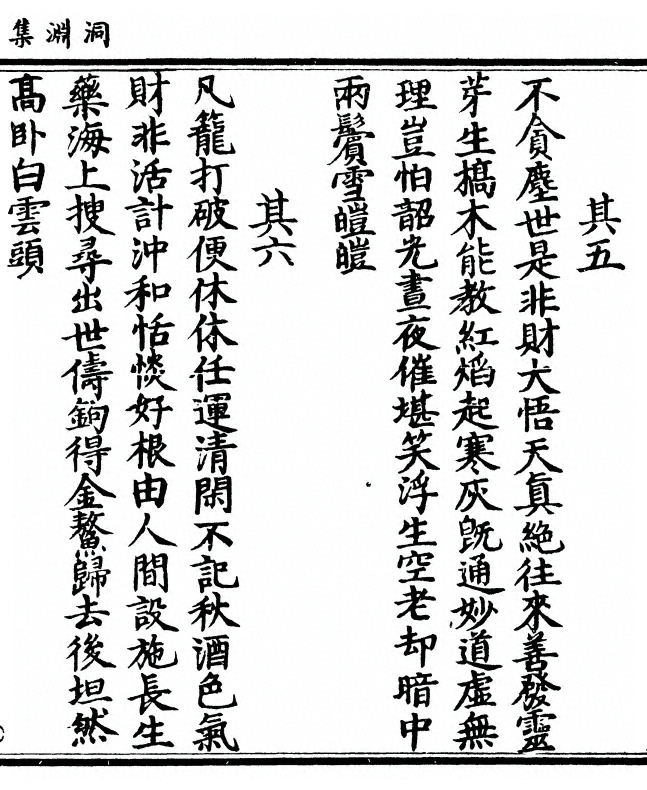 洞淵集
其五
不貪塵世是非財大悟天真絶往來善發靈
芽生槁木能教紅焰起寒灰既通妙道虛無
理豈怕韶光晝夜催堪笑浮生空老却暗中
兩鬢雪皚皚
其六
凡籠打破便休休任運清閑不記秋酒色氣
財非活計沖和恬惔好根由人間設施長生
藥海上搜尋出世儔鉤得金鰲歸去後坦然
高卧白雲頭